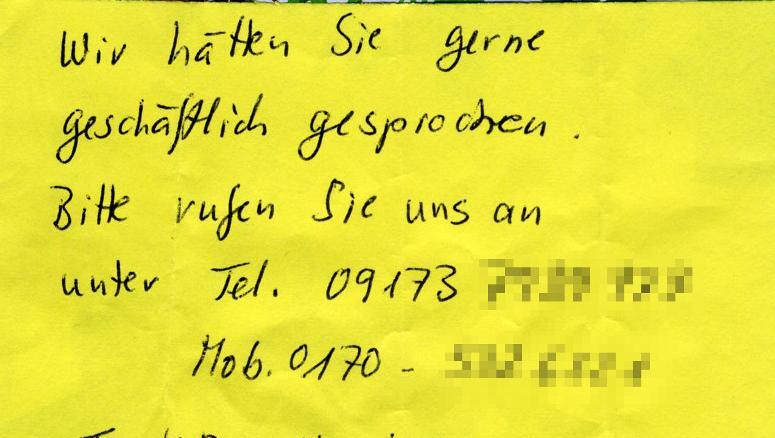 Wir hätten Sie gerne
geschäftlich gesprochen.
Bitte rufen Sie uns an
unter Tel. 09173
Mob. 0170 -